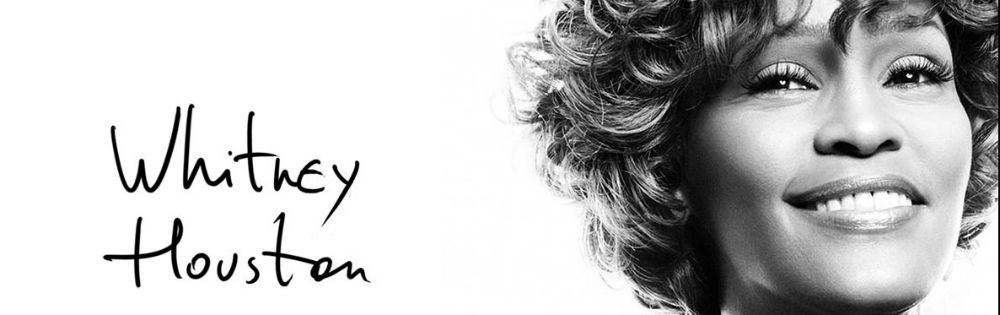 Whitney
Houston